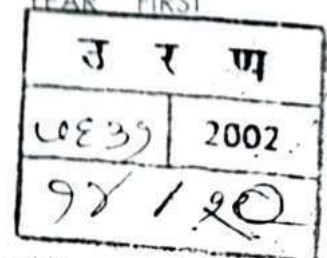 YEAR FIRST
उ र ण
७६३१ 2002
१४ / २०